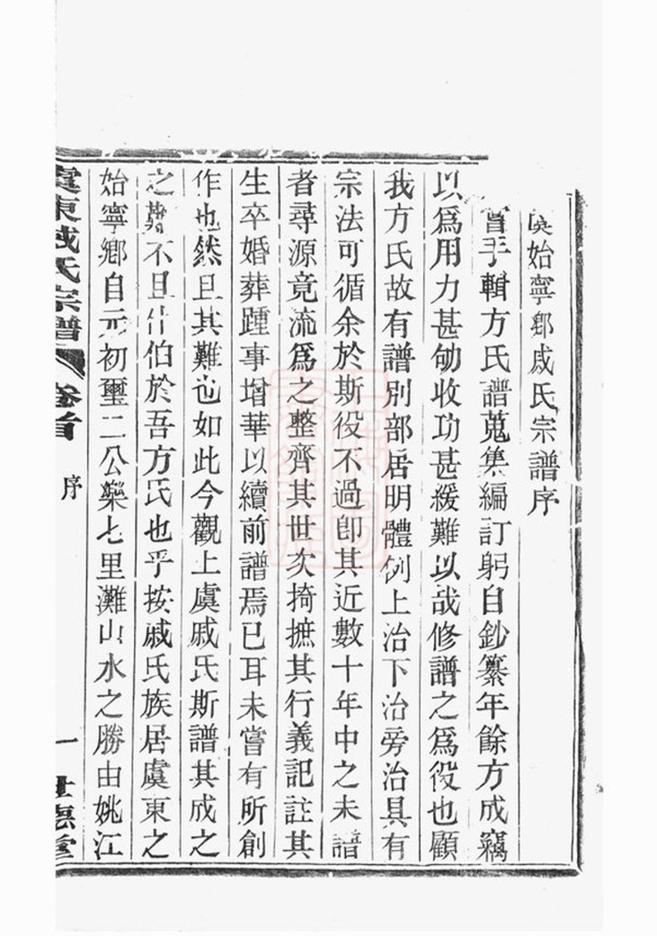 虞始寧鄉戚氏宗譜序
曾手輯方氏譜蒐集編訂躬自鈔纂年餘方成竊
以爲用力甚劬收功甚緩難以哉修譜之爲役也顧
我方氏故有譜別部居明體例上治下治旁治具有
宗法可循余於斯役不過卽其近數十年中之未譜
者尋源竟流爲之整齊其世次掎摭其行義記註其
生卒婚葬踵事增華以續前譜焉已耳未嘗有所創
作也然且其難也如此今觀上虞戚氏斯譜其成之
之難不且什伯於吾方氏也乎按戚氏族居虞東之
始寧鄉自元初璽二公樂七里灘山水之勝由姚江
虞東戚氏宗譜 卷首 序 一 世德堂